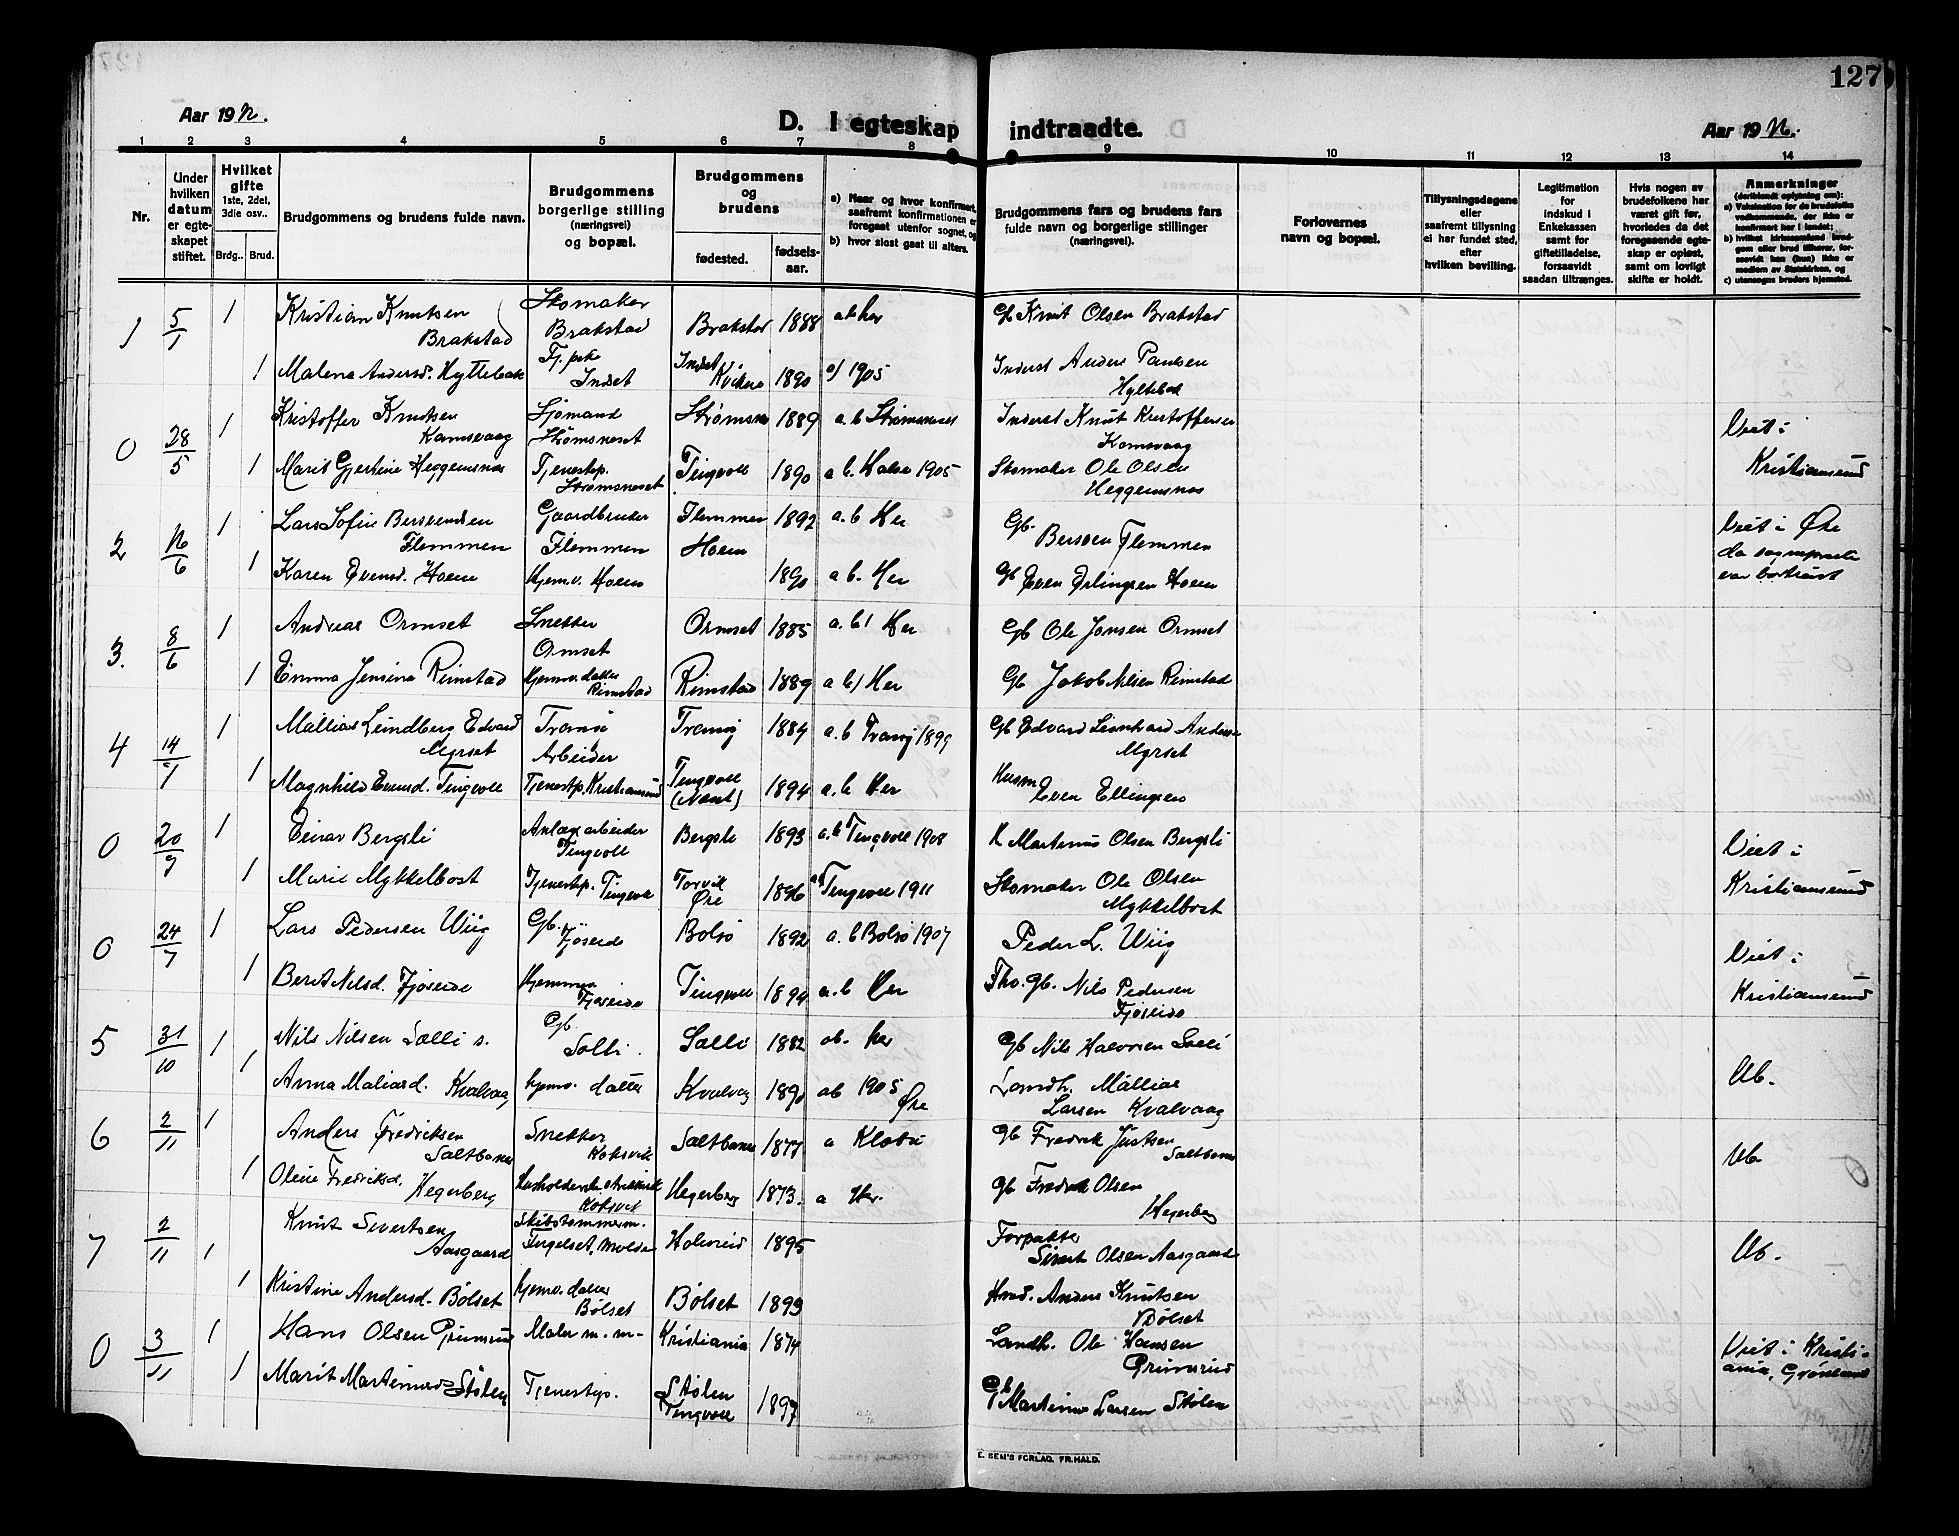 127
Aar 19
D. I egteskap indtraadte.
Aar 19
1 2 3 4 5 6 7 8 9 10 11 12 13 14
Nr.
Under hvilken datum er egte-skapet stiftet.
Hvilket gifte 1ste, 2det, 3die osv..
Brdg.. Brud.
Brudgommens og brudens fulde navn.
Brudgommens borgerlige stilling (næringsvei) og bopæl.
Brudgommens og brudens
fødested. fødsels-aar.
a) Naar og hvor konfirmert, saafremt konfirmationen er foregaat utenfor sognet, og
b) hvor sidst gaat til alters.
Brudgommens fars og brudens fars fulde navn og borgerlige stillinger (næringsvei).
Forlovernes navn og bopæl.
Tillysningsdagene eller saafremt tillysning ei har fundet sted, efter hvilken bevilling.
Legitimation for indskud i Enkekassen samt for giftetilladelse, forsaavidt saadan tiltrænges.
Hvis nogen av brudefolkene har været gift før, hvorledes da det foregaaende egte-skap er opløst, samt om lovlig skifte er holdt.
Anmerkninger (deriblandt oplysning om):
a) Vaksination for de brudefolks vedkommende, der ikke er konfirmert her i landet;
b) hvilket kirkesamfund brud-gom eller brud tilhører, for-saavidt han (hun) ikke er medlem av Statskirken, og
c) utensogns bruders hjemsted.
1 5/1 1 Kristian Knutsen Brakstad Skomaker Brakstad Brakstad 1888 ab her Gb Knut Olsen Brakstad
1 Malena Andersd. Hyttebak Tj.pike Indset Indset Kvikne 1890 a) 1905 Inderst Anders Paulsen Hyttebak
0 28/5 1 Kristoffer Knutsen Kamsvaag Sjømand Strømsneset Strømsnes 1889 a.b Strømsneset Inderst Knut Kristoffersen Kamsvaag Viet i Kristiansund
1 Marit Gjertine Heggemsnes Tjenestp. Strømsneset Tingvoll 1890 a b. Halsa 1905 Skomaker Ole Olsen Heggemsnes
2 /6 1 Lars Sofin Bersvendsen Flemmen Gaardbruker Flemmen Flemmen 1892 a.b Her Gb. Bersven Flemmen Viet i Øre da sognepresten var bortreist
1 Karen Evensd. Hoem Hjem.v. Hoem Hoem 1890 a b. Her Gb Even Erlingsen Hoem
3. 8/6 1 Andreas Ormset Snekker Ormset Ormset 1885 a.b) Her Gb Ole Jonsen Ormset
1 Emma Jensina Rimstad Hjemv. datter Rimstad Rimstad 1889 a b) Her Gb Jakob Nilsen Rimstad
4 14/7 1 Mattias Lindberg Edvard Myrset Tromsø Arbeider Tranøj 1884 a.b Tranøj 1899 Gb Edvard Leonhard Anders Myrset
1 Magnhild Evensd. Tingvoll Tjenestp. Kristiansund Tingvoll (Næst) 1894 a.b Her Husm Even Ellingsen
0 20/9 1 Einar Bergsli Anlægsarbeider Tingvoll Bergsli 1893 a.b Tingvoll 1908 K Martinus Olsen Bergsli Viet i Kristiansund
1 Marie Mykkelbost Tjenestp. Tingvoll Torvik Øre 1896 ab Tingvoll 1911 Skomaker Ole Olsen Mykkelbost
0 24/7 1 Lars Pedersen Wiig Gb. Fjøseide Bolsø 1892 a.b Bolsø 1907 Peder L. Wiig Viet i Kristiansund
1 Berit Nilsd. Fjøseide Hjemmev. Fjøseide Tingvoll 1894 a.b Her Fho. Gb. Nils Pedersen Fjøseide
5 31/10 1 Nils Nilsen Sælli s. Gb. Solli Sælli 1882 ab. her Gb Nils Halvorsen Sælli Ub.
1 Anna Maliasd. Kvalvaag hjemv. datter Kvalvag 1890 ab 1905 Øre Landh. Mattias Larsen Kvalvaag
6 2/11 1 Anders Fredriksen Saltbones Snekker Koksvik Saltbones 1877 a Klæbu Gb Fredrik Justsen Saltbones Ub
1 Oline Fredriksd. Hegerberg Husholderske Koksvik Hegerberg 1873. a Her. Gb Fredrik Olsen Hegerberg
7 2/11 1 Knut Sivertsen Aasgaard Skibstømmerm. Fugelset, Molde Holmeid 1895 Forpakter Sivert Olsen Aasgaard Ub.
1 Kristine Andersd. Bølset hjemv. datter Bølset Bølset 1893 Anders Knutsen Bølset
0 3/11 1 Hans Olsen Grimsrud Maler m. m- Kristiania 1874 Landh. Ole Hansen Grimsrud Viet i Kristiania, Grønland
1 Marit Martinusd Stølen Tjenestp. Stølen Tingvoll 1897 Gb Martinus Larsen Stølen
E. SEM'S FORLAG, FR.HALD.